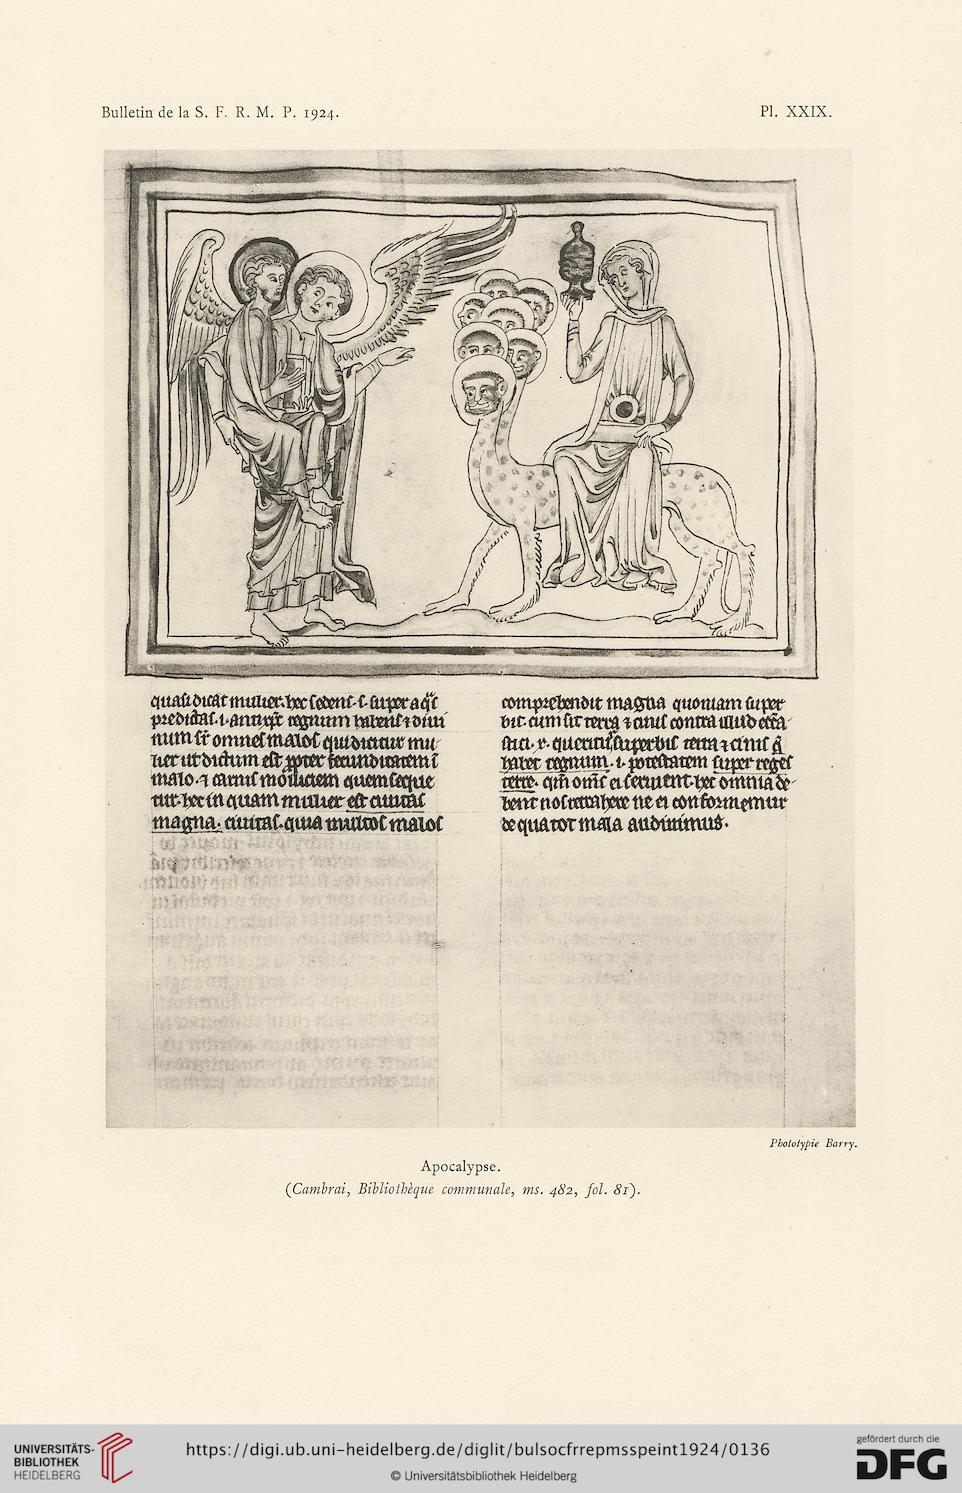 Bulletin de la S. F. R. M. P. 1924.
Pl. XXIX.
quasi dicat mulier. hec sedens. s. super aqͣs
predictas. i. antixͥ regnum habens ⁊ diui
num sͬ omnes malos qui dicitur mu
lier ut dictum est ꝓpter fecunditatem ī
malo. ⁊ carnis molliciem quem seque
tur. hec in quam mulier est ciuitas
magna. ciuitas. quia multos malos
comprehendit magna quoniam super
bit. cum sit terra ⁊ cinis contra illud
habet regnum. i. potestatem super reges
terre. qm̄ om̄s ei seruient. hec omnia de
bent nos retrahere ne ei conformemur
de qua tot mala audiuimus.
Phototypie Barry.
Apocalypse.
(Cambrai, Bibliothèque communale, ms. 482, fol. 81).
UNIVERSITÄTS-
BIBLIOTHEK
HEIDELBERG
https://digi.ub.uni-heidelberg.de/diglit/bulsocfrrepmsspeint1924/0136
© Universitätsbibliothek Heidelberg
gefördert durch die
DFG